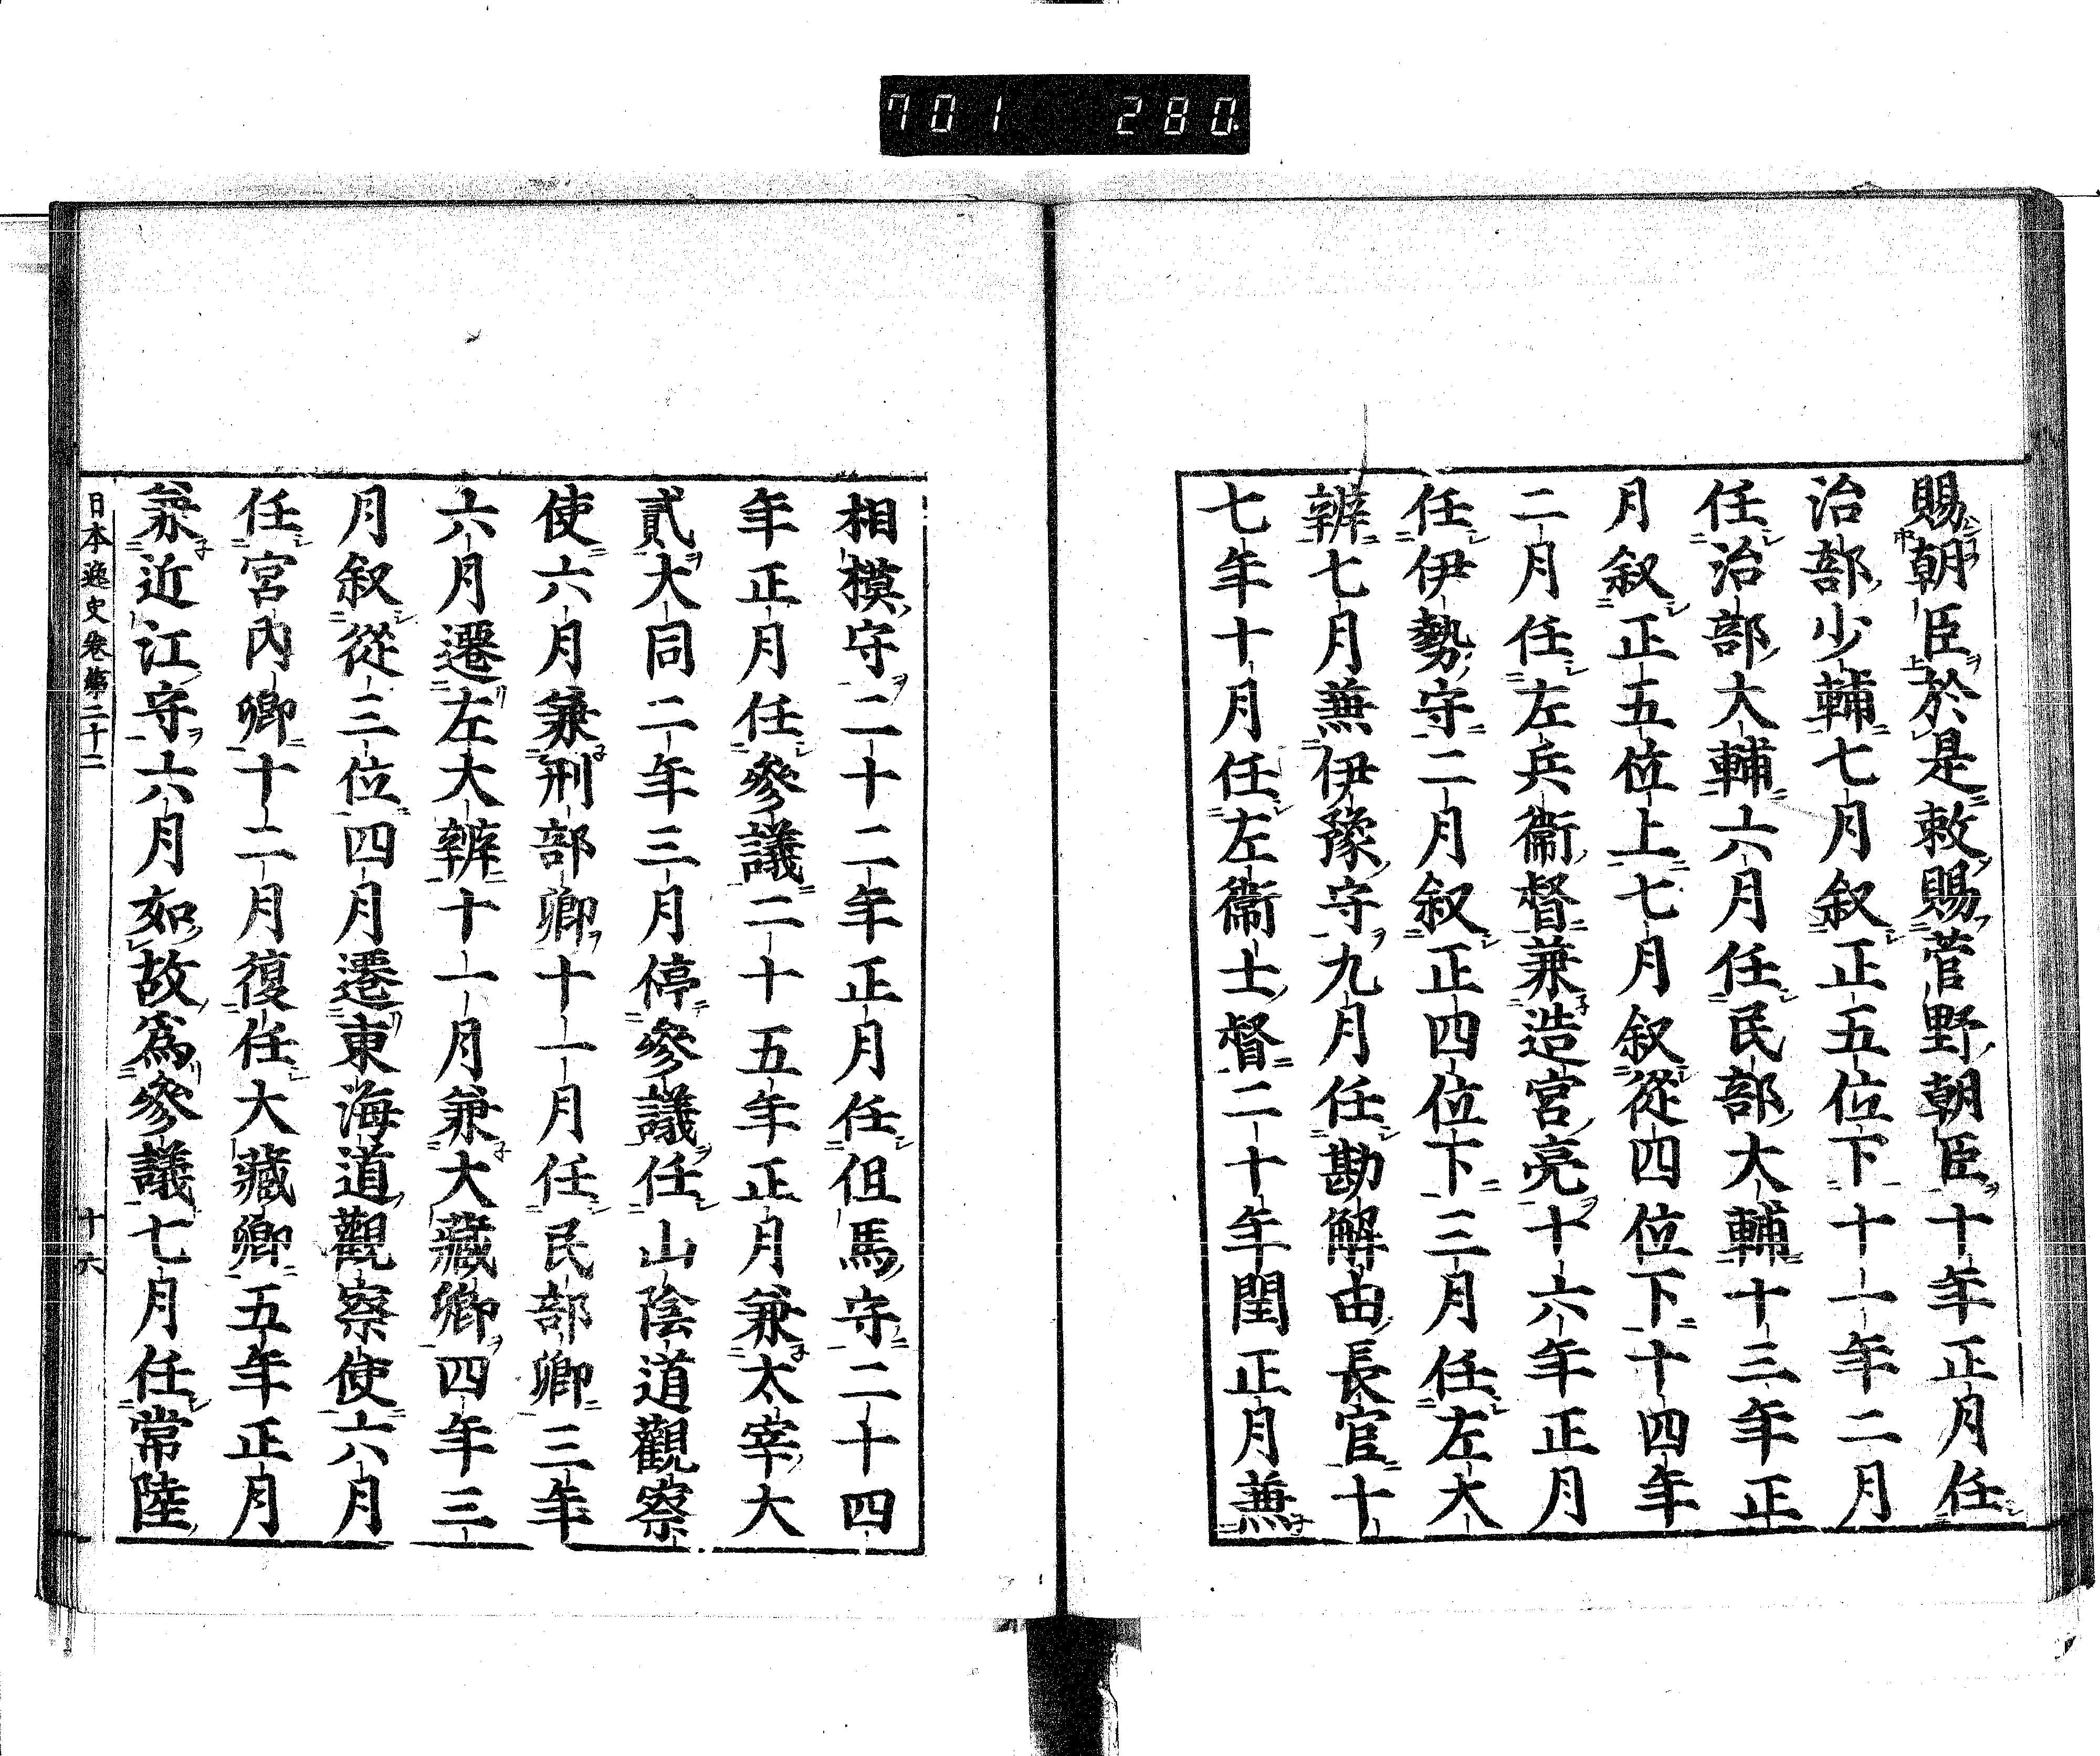 701 280
賜朝臣於是敕賜菅野朝臣十年正月任
治部少輔七月叙正五位下十一年二月
任治部大輔六月任民部大輔十三年正
月叙正五位上七月叙從四位下十四年
二月任左兵衞督兼造宮亮十六年正月
任伊勢守二月叙正四位下三月任左大
辨七月兼伊豫守九月任勘解由長官十
七年十月任左衞士督二十年閏正月兼
相模守二十二年正月任但馬守二十四
年正月任參議二十五年正月兼太宰大
貳大同二年三月停參議任山陰道觀察
使六月兼刑部卿十一月任民部卿三年
六月遷左大辨十一月兼大藏卿四年三
月叙從三位四月遷東海道觀察使六月
任宮內卿十二月復任大藏卿五年正月
兼近江守六月如故爲參議七月任常陸
日本逸史卷第二十二
十六